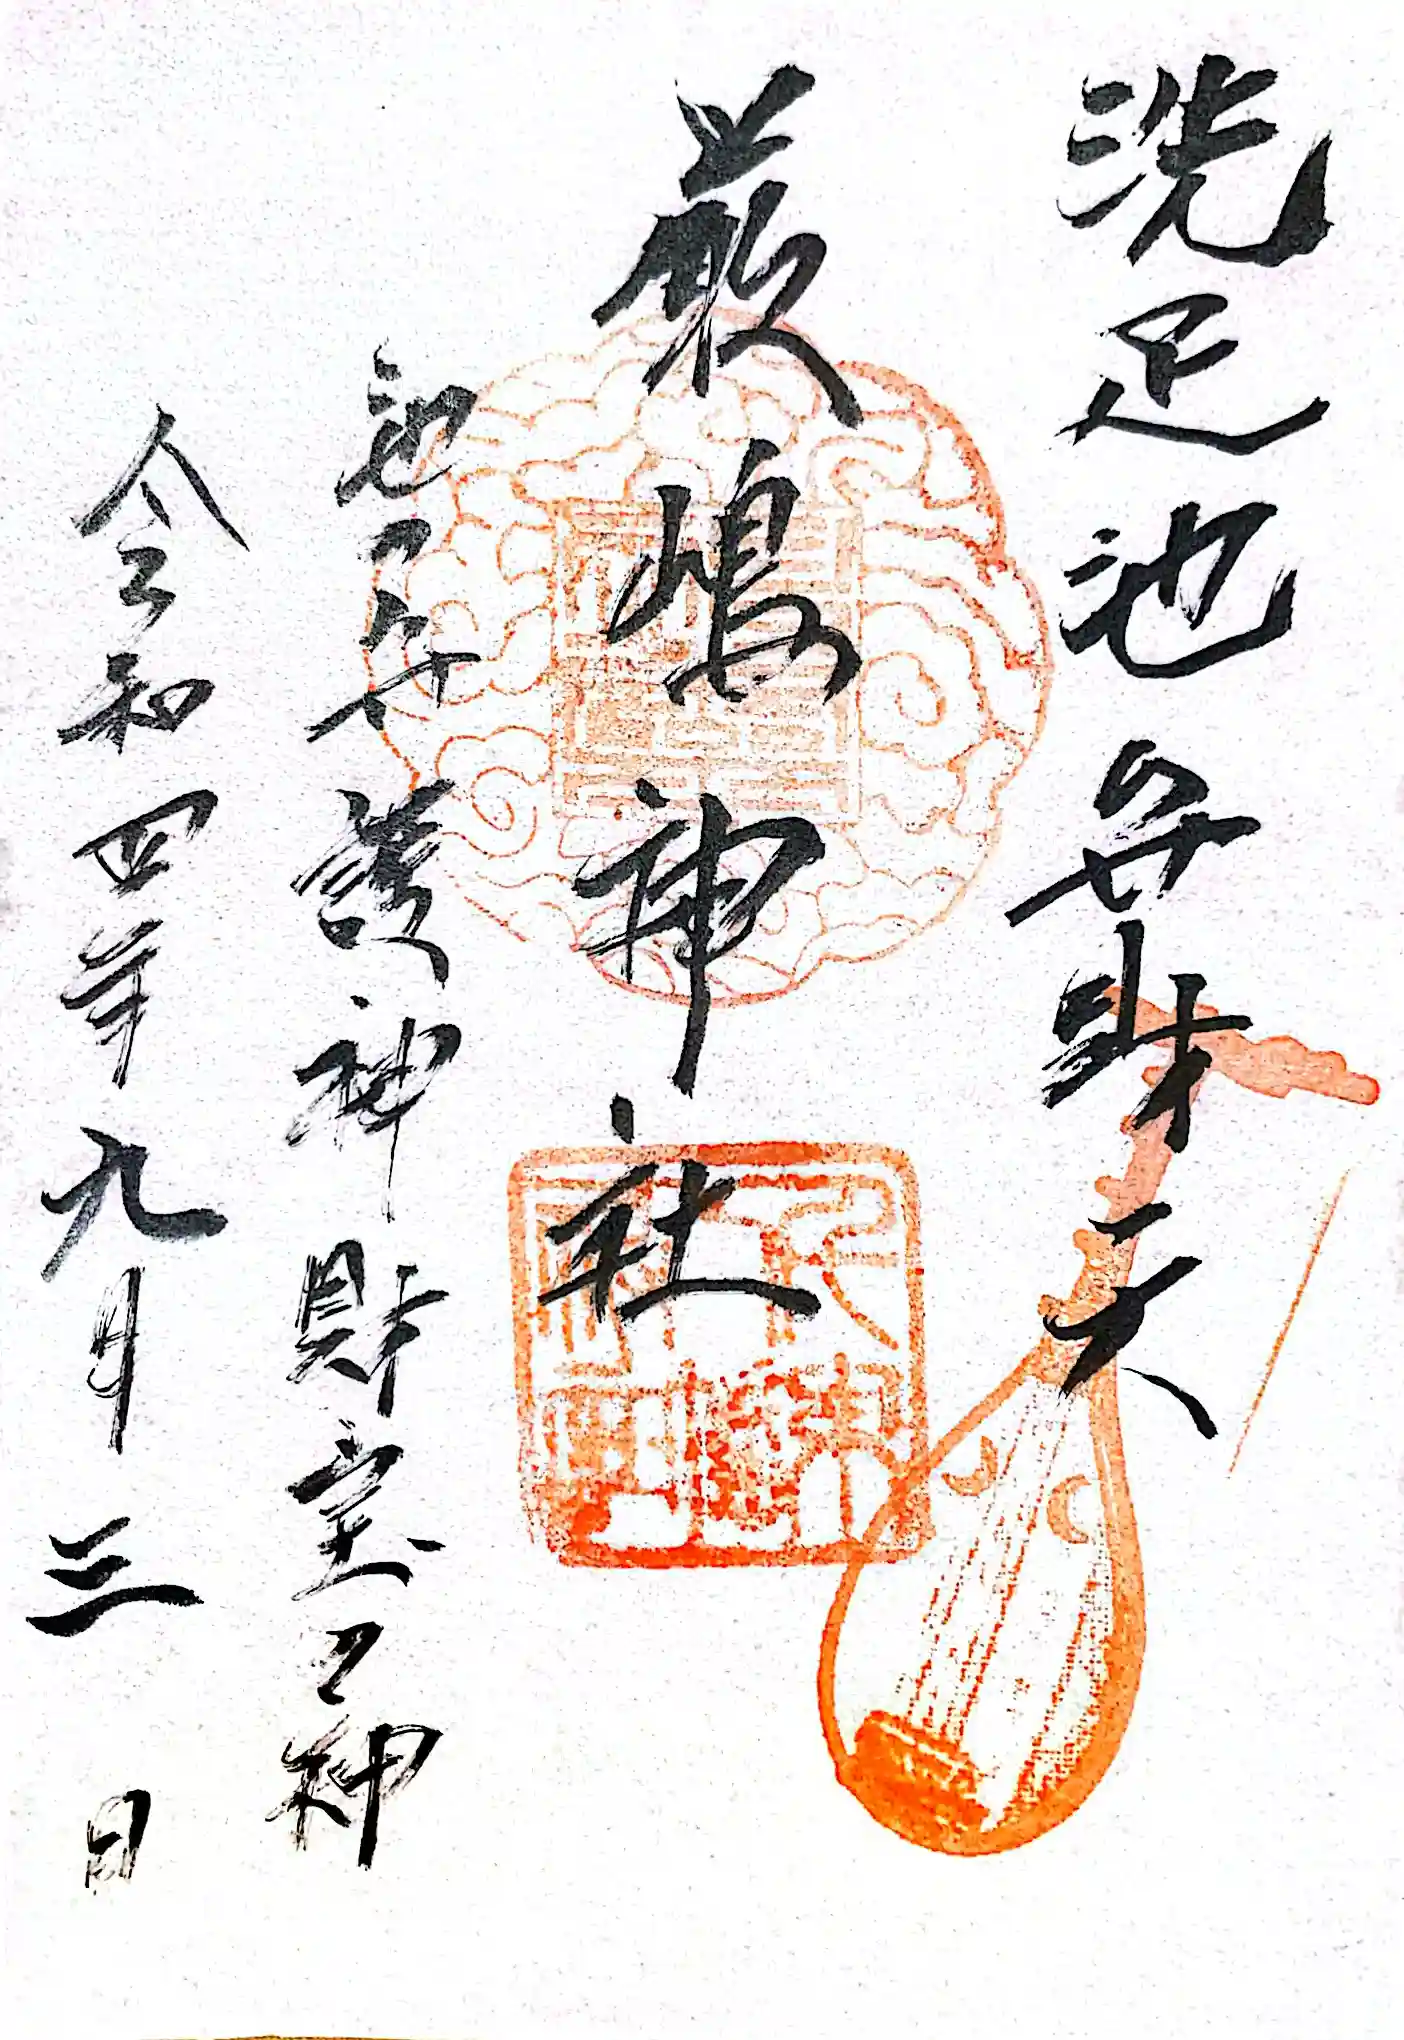 洗足池弁財天
厳嶋神社
池乃守護神財宝乃神
令和四年九月三日